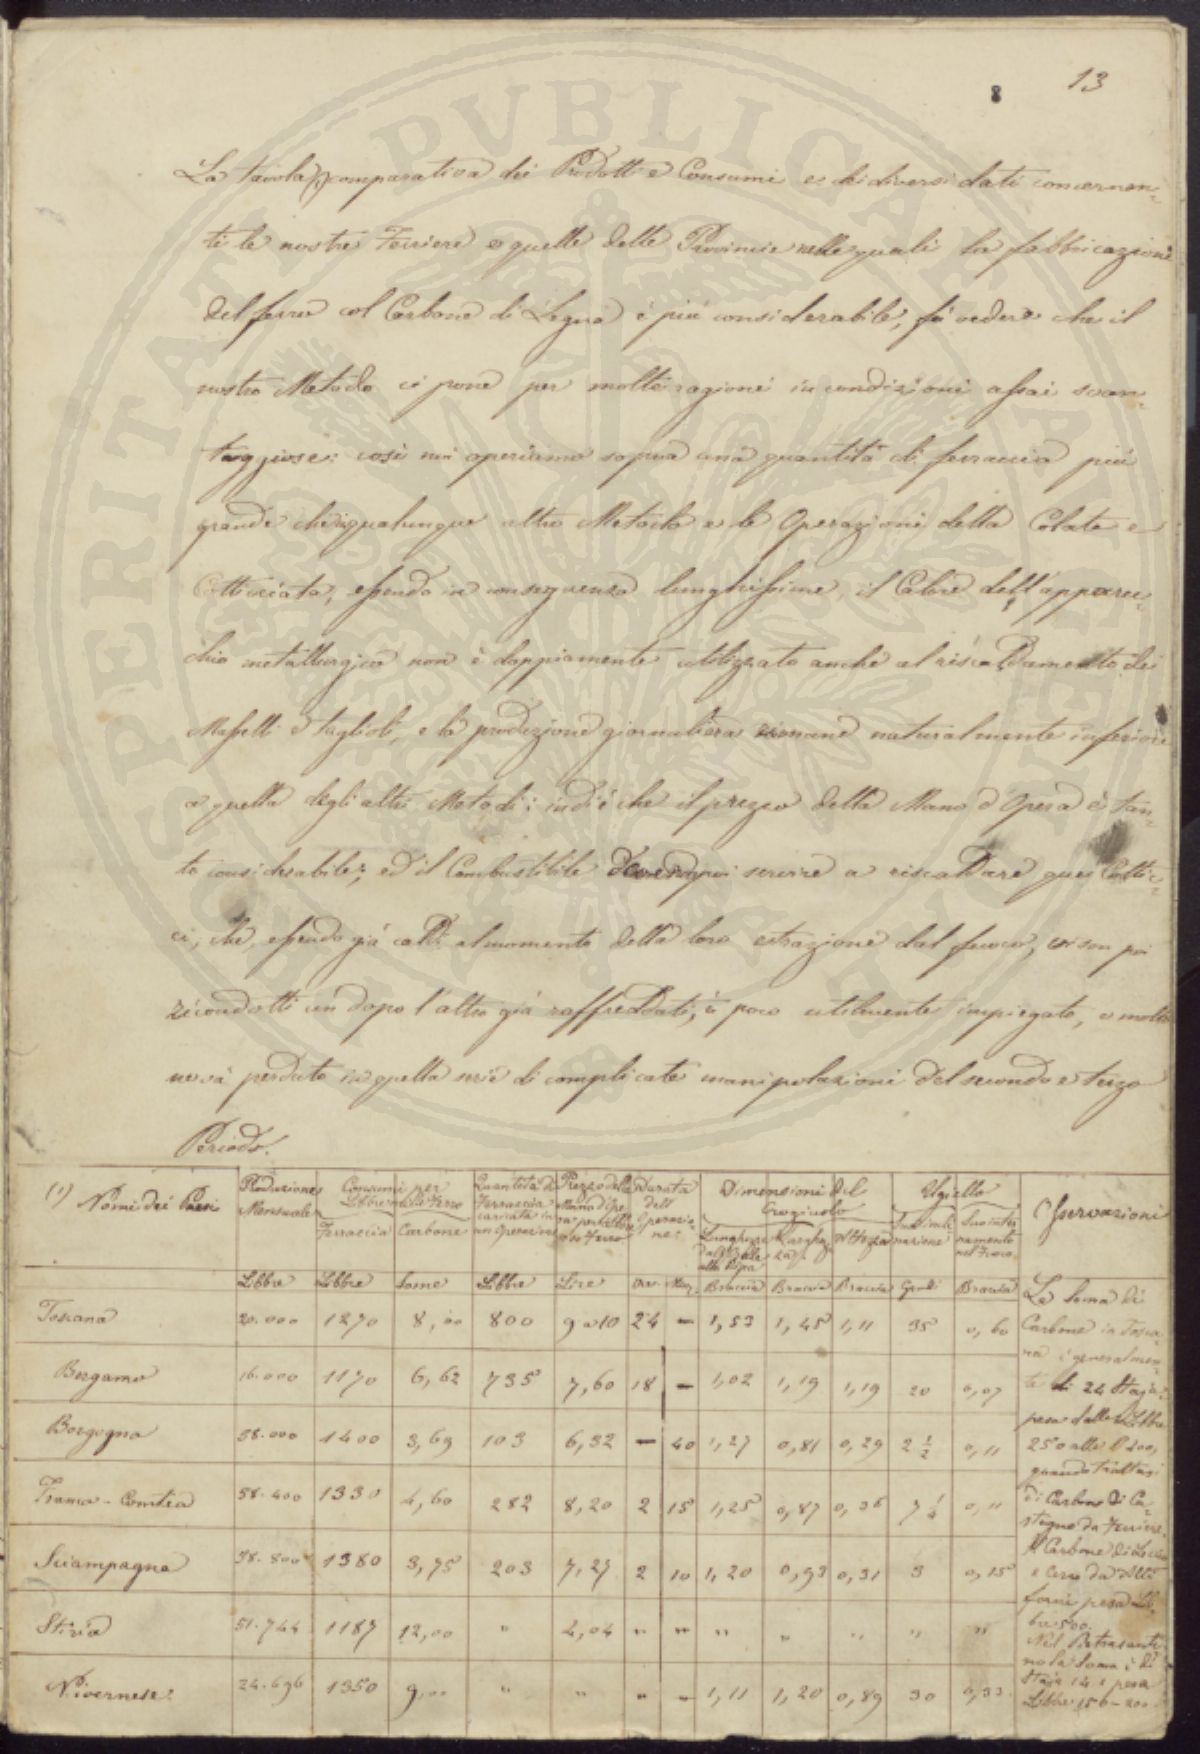 8 13
La tavola (1) comparativa dei Prodotti e Consumi e dei diversi dati concernen-
ti le nostre Ferriere e quelle delle Provincie nelle quali la fabbricazione
del ferro col Carbone di Legna è più considerabile, fà vedere che il
nostro Metodo ci pone per molte ragioni in condizioni assai svan-
taggiose: così noi operiamo sopra una quantità di ferraccia più
grande che in qualunque altro Metodo e le Operazioni della Colata e
Cotticciata, essendo in conseguenza lunghissime, il Calore dell'apparec-
chio metallurgico non è doppiamente utilizzato anche al riscaldamento dei
Masselli e Taglioli, e la produzione giornaliera rimane naturalmente inferiore
a quella degli altri Metodi: indi è che il prezzo della Mano d'Opera è tan-
to considerabile; ed il Combustibile dovendo poi servire a riscaldare quei Cottic-
ci, che, essendo già caldi al momento della loro estrazione dal fuoco, vi son poi
ricondotti un dopo l'altro già raffreddati, è poco utilmente impiegato, e molto
ne và perduto in quella serie di complicate manipolazioni del secondo e terzo
Periodo.
(1) Nomi dei Paesi | Produzione Mensuale | Consumi per Libbre Ferro | Quantità di Ferraccia caricata in un'Operazione | Prezzo della Mano d'Opera | Durata dell'Operazione | Dimensioni del Crogiuolo | Ugiello | Osservazioni
Ferraccia | Carbone | Lunghezza dall' alla | Larghezza | Altezza | Sua inclinazione | Suo internamento nel Fuoco
Libbre | Libbre | Some | Libbre | Lire | Ore | Min. | Braccia | Braccia | Braccia | Gradi | Braccia
Toscana | 20.000 | 1270 | 8,00 | 800 | 9 a 10 | 24 | – | 1,53 | 1,45 | 1,11 | 35 | 0,60
Bergamo | 16.000 | 1170 | 6,62 | 735 | 7,60 | 18 | – | 1,02 | 1,19 | 1,19 | 20 | 0,07
Borgogna | 58.000 | 1400 | 3,69 | 103 | 6,32 | – | 40 | 1,27 | 0,81 | 0,29 | 2 1/2 | 0,11
Franca-Contea | 58.400 | 1330 | 4,60 | 282 | 8,20 | 2 | 15 | 1,25 | 0,87 | 0,36 | 7 1/4 | 0,11
Sciampagna | 58.800 | 1380 | 3,75 | 203 | 7,27 | 2 | 10 | 1,20 | 0,93 | 0,31 | 3 | 0,15
Stiria | 51.744 | 1187 | 12,00 | " | 4,04 | " | " | " | " | " | " | "
Nivernese | 24.696 | 1350 | 9,00 | " | " | " | " | 1,11 | 1,20 | 0,89 | 30 | 0,33
La Soma di
Carbone in Tosca-
na è generalmen-
te di 24 Staja:
pesa dalle Libbre
250 alle L 300,
quando trattasi
di Carbone di Ca-
stagno da Ferriere.
Il Carbone di Leccio
e Cerro da Alti
forni pesa Lib-
bre 500.
Nel Pietrasanti-
no la Soma è di
Staja 14 e pesa
Libbre 150-200
PROSPERITATI PVBLICAE AVGENDAE